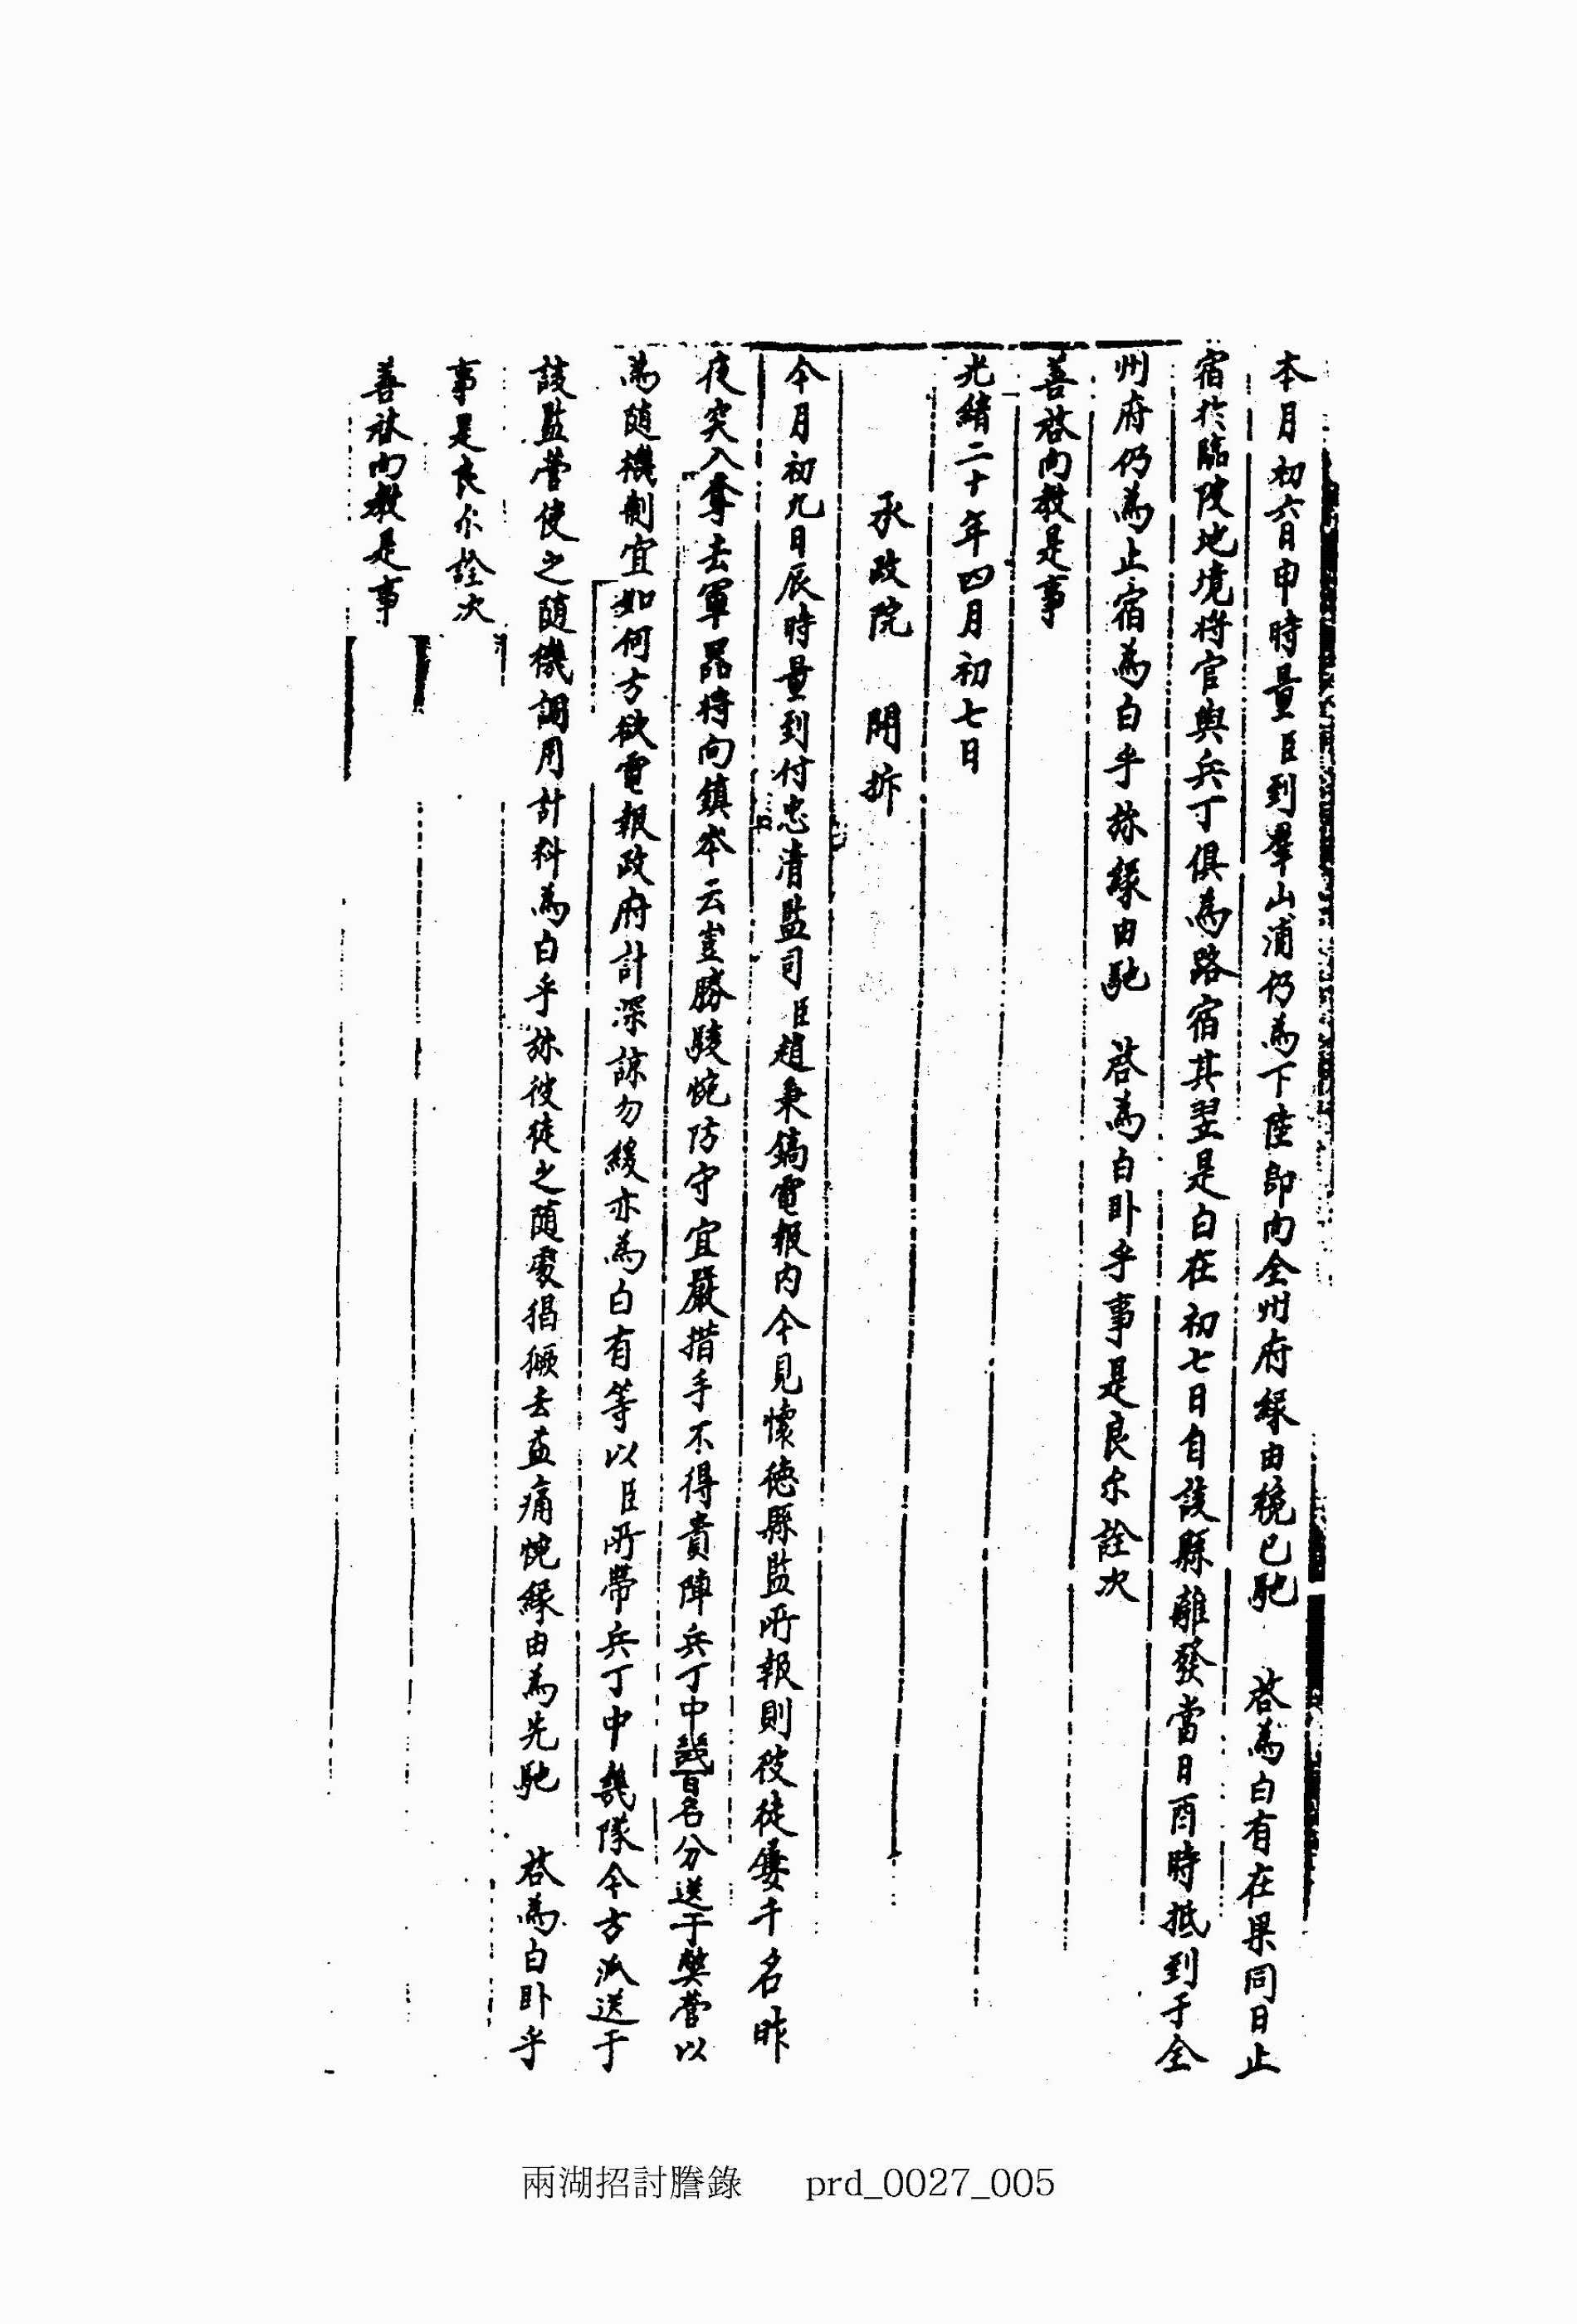 本月初六日申時量臣到羣山浦仍爲下陸卽向全州府緣由纔已馳　啓爲白有在果同日止
宿於臨陂地境將官與兵丁俱爲路宿其翌是白在初七日自該縣離發當日酉時抵到于全
州府仍爲止宿爲白乎旀緣由馳　啓爲白臥乎事是良尒詮次
善啓向敎是事
光緖二十年四月初七日
承政院　開拆
今月初九日辰時量到付忠淸監司臣趙秉鎬電報內今見懷德縣監所報則彼徒屢千名昨
夜突入奪去軍器將向鎭岑云豈勝駭惋防守宜嚴措手不得貴陣兵丁中幾百名分送于弊營以
爲隨機制宜如何方欲電報政府計深諒勿緩亦爲白有等以臣所帶兵丁中幾隊今方派送于
該監營使之隨機調用計料爲白乎旀彼徒之隨處猖獗去益痛惋緣由爲先馳　啓爲白臥乎
事是良尒詮次
善啓向敎是事
兩湖招討謄錄　prd_0027_005